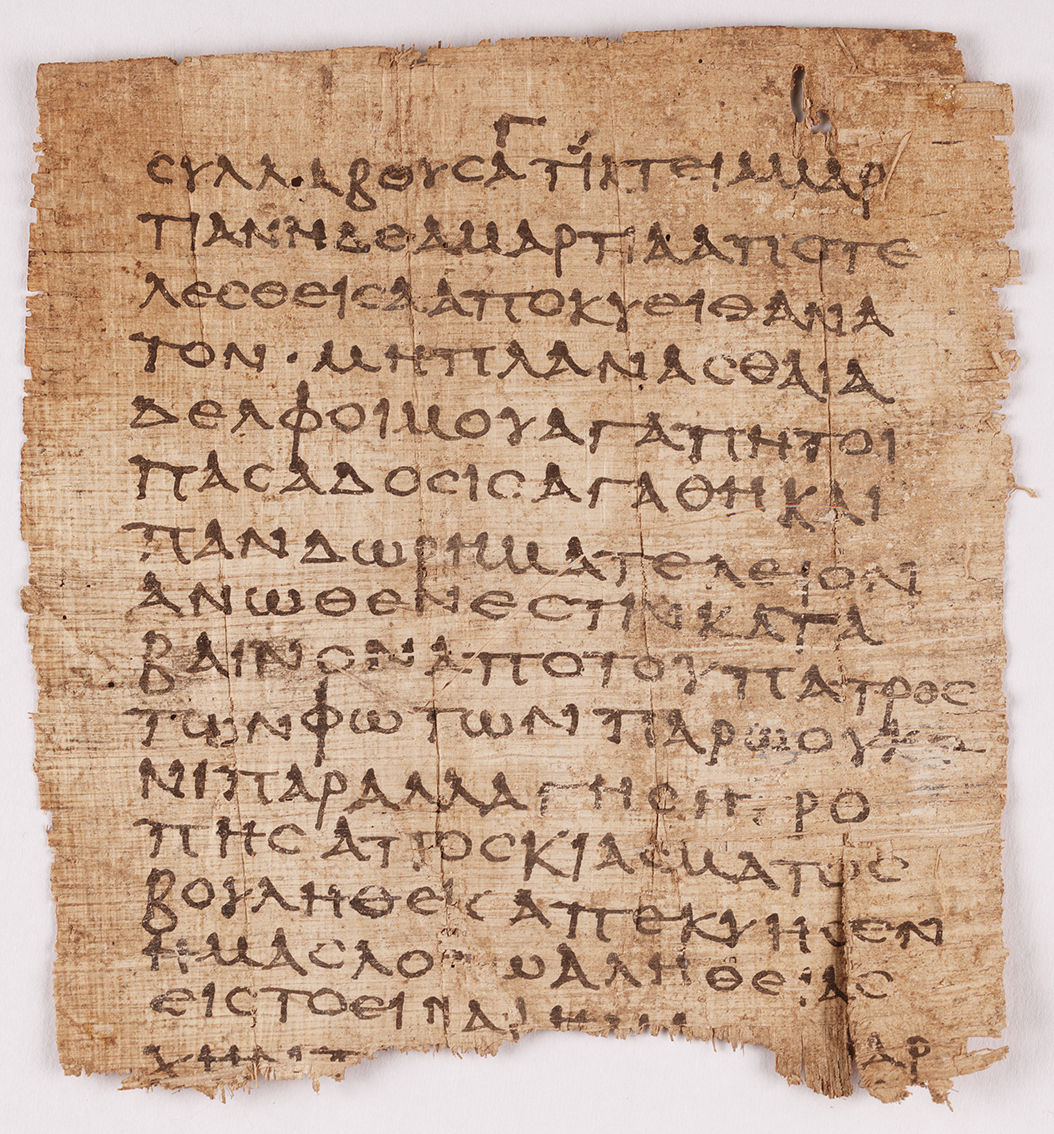 Γ
ϹΥΛΛΑΒΟΥϹΑΤΙΚΤΕΙΑΜΑΡ
ΤΙΑΝΗΔΕΑΜΑΡΤΙΑΑΠΟΤΕ
ΛΕϹΘΕΙϹΑΑΠΟΚΥΕΙΘΑΝΑ
ΤΟΝ · ΜΗΠΛΑΝΑϹΘΑΙΑ
ΔΕΛΦΟΙΜΟΥΑΓΑΠΗΤΟΙ
ΠΑϹΑΔΟϹΙϹΑΓΑΘΗΚΑΙ
ΠΑΝΔΩΡΗΜΑΤΕΛΕΙΟΝ
ΑΝΩΘΕΝΕϹΤΙΝΚΑΤΑ
ΒΑΙΝΟΝΑΠΟΤΟΥΠΑΤΡΟϹ
ΤΩΝΦΩΤΩΝΠΑΡΩΟΥΚΕ
ΝΙΠΑΡΑΛΛΑΓΗϹΗΡΟ
ΠΗϹΑΠΟϹΚΙΑϹΜΑΤΟϹ
ΒΟΥΛΗΘΕΙϹΑΠΕΚΥΗϹΕΝ
ΗΜΑϹΛΟΓΩΑΛΗΘΕΙΑϹ
ΕΙϹΤΟΕΙΝΑΙ
ΑΡ